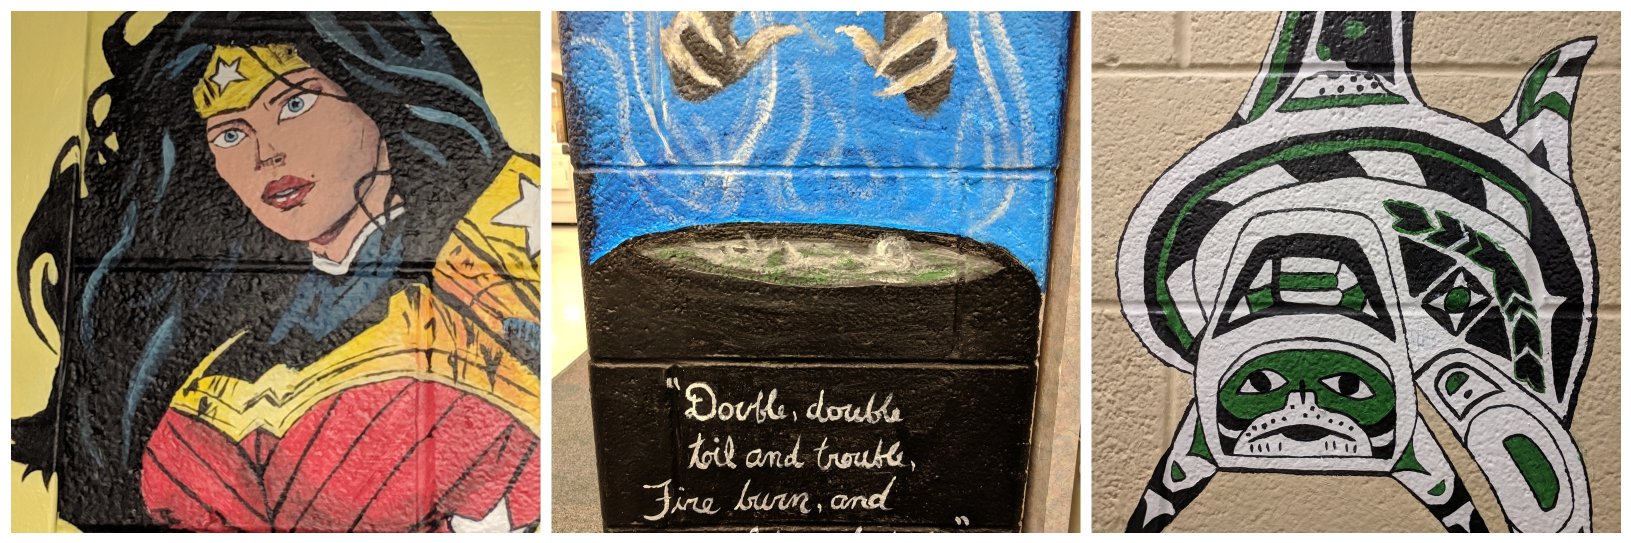 "Double, double
toil and trouble,
Fire burn, and
"